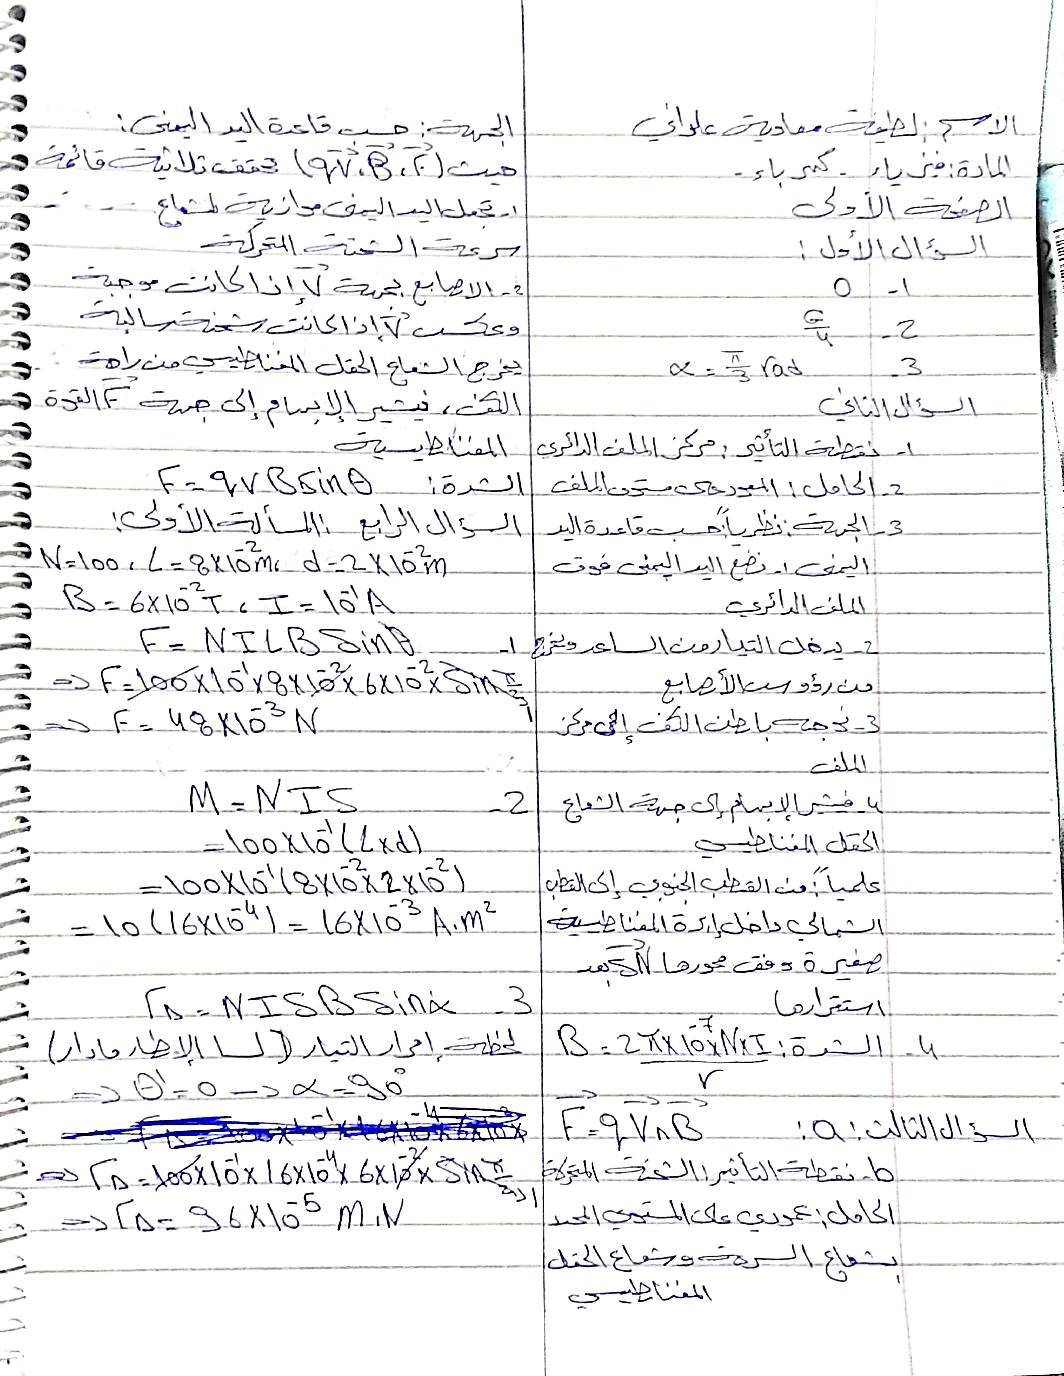 الاسم: لطيفة معاوية علواني
المادة: فيزياء - كهرباء -
الصفحة الأولى
السؤال الأول:
1- 0
2- G/4
3- α = π/3 rad
السؤال الثاني
1- نقطة التأثير: مركز الملف الدائري
2- الحامل: العمود على مستوى الملف
3- الجهة: نظرياً: حسب قاعدة اليد
اليمنى 1- نضع اليد اليمنى فوق
الملف الدائري
2- يدخل التيار من الساعد ويخرج
من رؤوس الأصابع
3- نوجه باطن الكف إلى مركز
الملف
4- فيشير الإبهام إلى جهة الشعاع
الحقل المغناطيسي
علمياً: من القطب الجنوبي إلى القطب
الشمالي داخل إبرة المغناطيسية
صغيرة وفق محورها SN بعد
استقرارها
4- الشدة: B = 2π×10⁻⁷×N×I / r
السؤال الثالث: a: F = qV∧B
b- نقطة التأثير: الشحنة المتحركة
الحامل: عمودي على المستوي المحدد
بشعاع السرعة وشعاع الحقل
المغناطيسي
الجهة: حسب قاعدة اليد اليمنى:
حيث (qV, B, F) تحقق ثلاثية قائمة
1- نجعل اليد اليمنى موازية لشعاع
سرعة الشحنة المتحركة
2- الاصابع بجهة V إذا كانت موجبة
وعكس V إذا كانت شحنة سالبة
يخرج الشعاع الحقل المغناطيسي من راحة
الكف، فيشير الإبهام إلى جهة F القوة
المغناطيسية
الشدة: F = qvBsinθ
السؤال الرابع: المسألة الأولى:
N=100، L=8×10⁻²m، d=2×10⁻²m
B = 6×10⁻²T، I = 10⁻¹A
1- F = NILB Sinθ
⇒ F=100×10⁻¹×8×10⁻²×6×10⁻²×Sin π/2 ⇒1
⇒ F = 48×10⁻³ N
2- M = NIS
=100×10⁻¹(L×d)
=100×10⁻¹(8×10⁻²×2×10⁻²)
= 10(16×10⁻⁴) = 16×10⁻³ A.m²
3- ΓΔ = NISB Sinα
لحظة إمرار التيار (لسا الإطار مادار)
⇒ θ'=0 → α=90°
⇒ ΓΔ=100×10⁻¹×16×10⁻⁴×6×10⁻²×Sin π/2 ⇒1
⇒ ΓΔ = 96×10⁻⁵ M.N